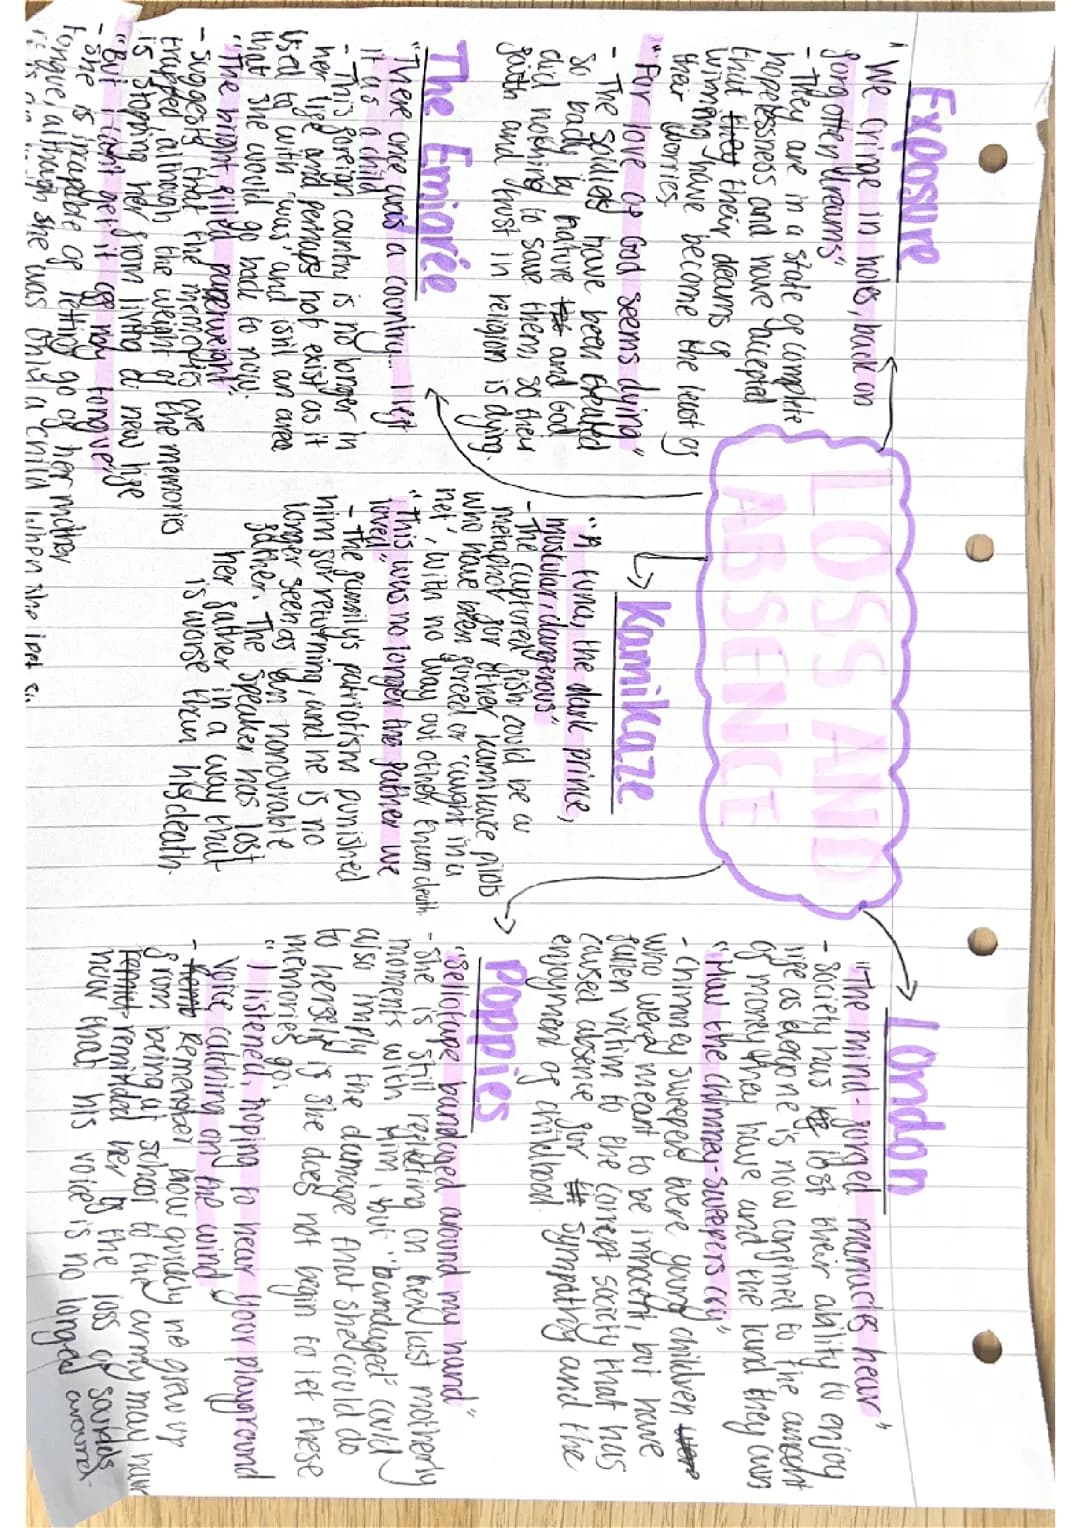 LOSS AND
ABSENCE
Exposure
"We cringe in holes, back on
forgotten dreams"
- They are in a state of complete
hopelessness and have accepted
that they their dreams of
winning have become the least of
their worries
"For love of God seems dying"
- The soldiers have been
so badly by nature and God
did nothing to save them so their
faith and trust in religion is dying.
The Emigrée
"There once was a country... I left
it as a child
- This foreign country is no longer in
her life and perhaps not exist as it
used to with "was" and isnt an area
that she would go back to now.
"The bright, filled paperweight"
- Suggests that the memories are
trapped, although the weight of the memories
is stopping her from living a new life
"But I can't get it off my tongue"
- She is incapable of letting go of her mother
tongue, although she was only a child when she left
Kamikaze
"A tuna, the dark prince,
muscular, dangerous"
- The captured fish could be a
metaphor for other kamikaze pilots
who have been forced or "caught in a
net", with no way out other than death
"This was no longer the father we
loved"
- The family's patriotism punished
him for returning, and he is no
longer seen as an honourable
father. The speaker has lost
her father in a way that
is worse than his death.
London
"The mind-forged manacles hear"
- Society has lost their ability to enjoy
life as everyone is now confined to the amount
of money they have and the land they own
"How the chimney-sweepers cry"
- Chimney sweepers were young children were
who were meant to be innocent, but have
fallen victim to the corrupt society that has
caused absence for sympathy and the
enjoyment of childhood.
Poppies
"Sellotape bandaged around my hand"
- She is still reflecting on her last motherly
moments with him, but "bandaged" could
also imply the damage that she could do
to herself if she does not begin to let these
memories go.
"I listened, hoping to hear your playground
voice catching on the wind"
- Remember how quickly he grew up
from being at school to the army may
reminded her of the loss of
now that his voice is no longer around.